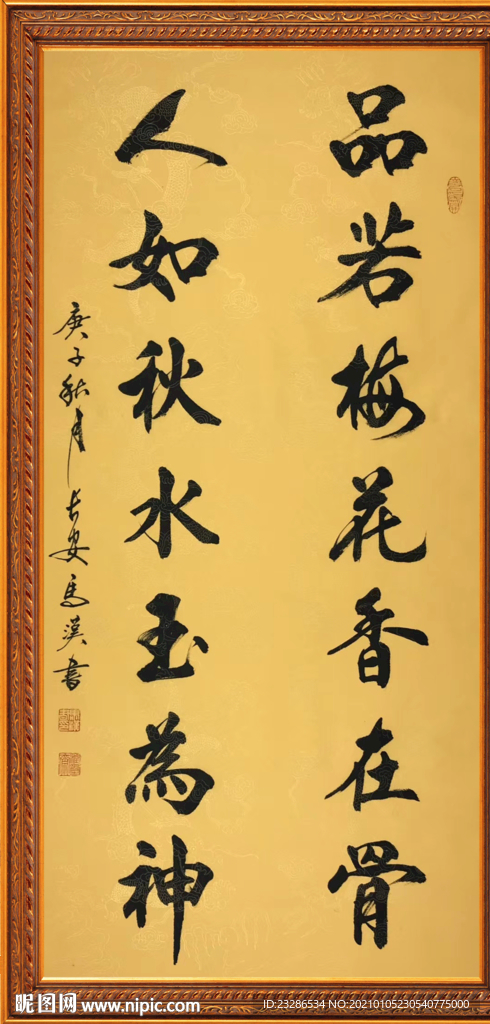 品若梅花香在骨
人如秋水玉為神
庚子秋月長安馬漢書
昵图网 www.nipic.com
ID:23286534 NO:20210105230540775000